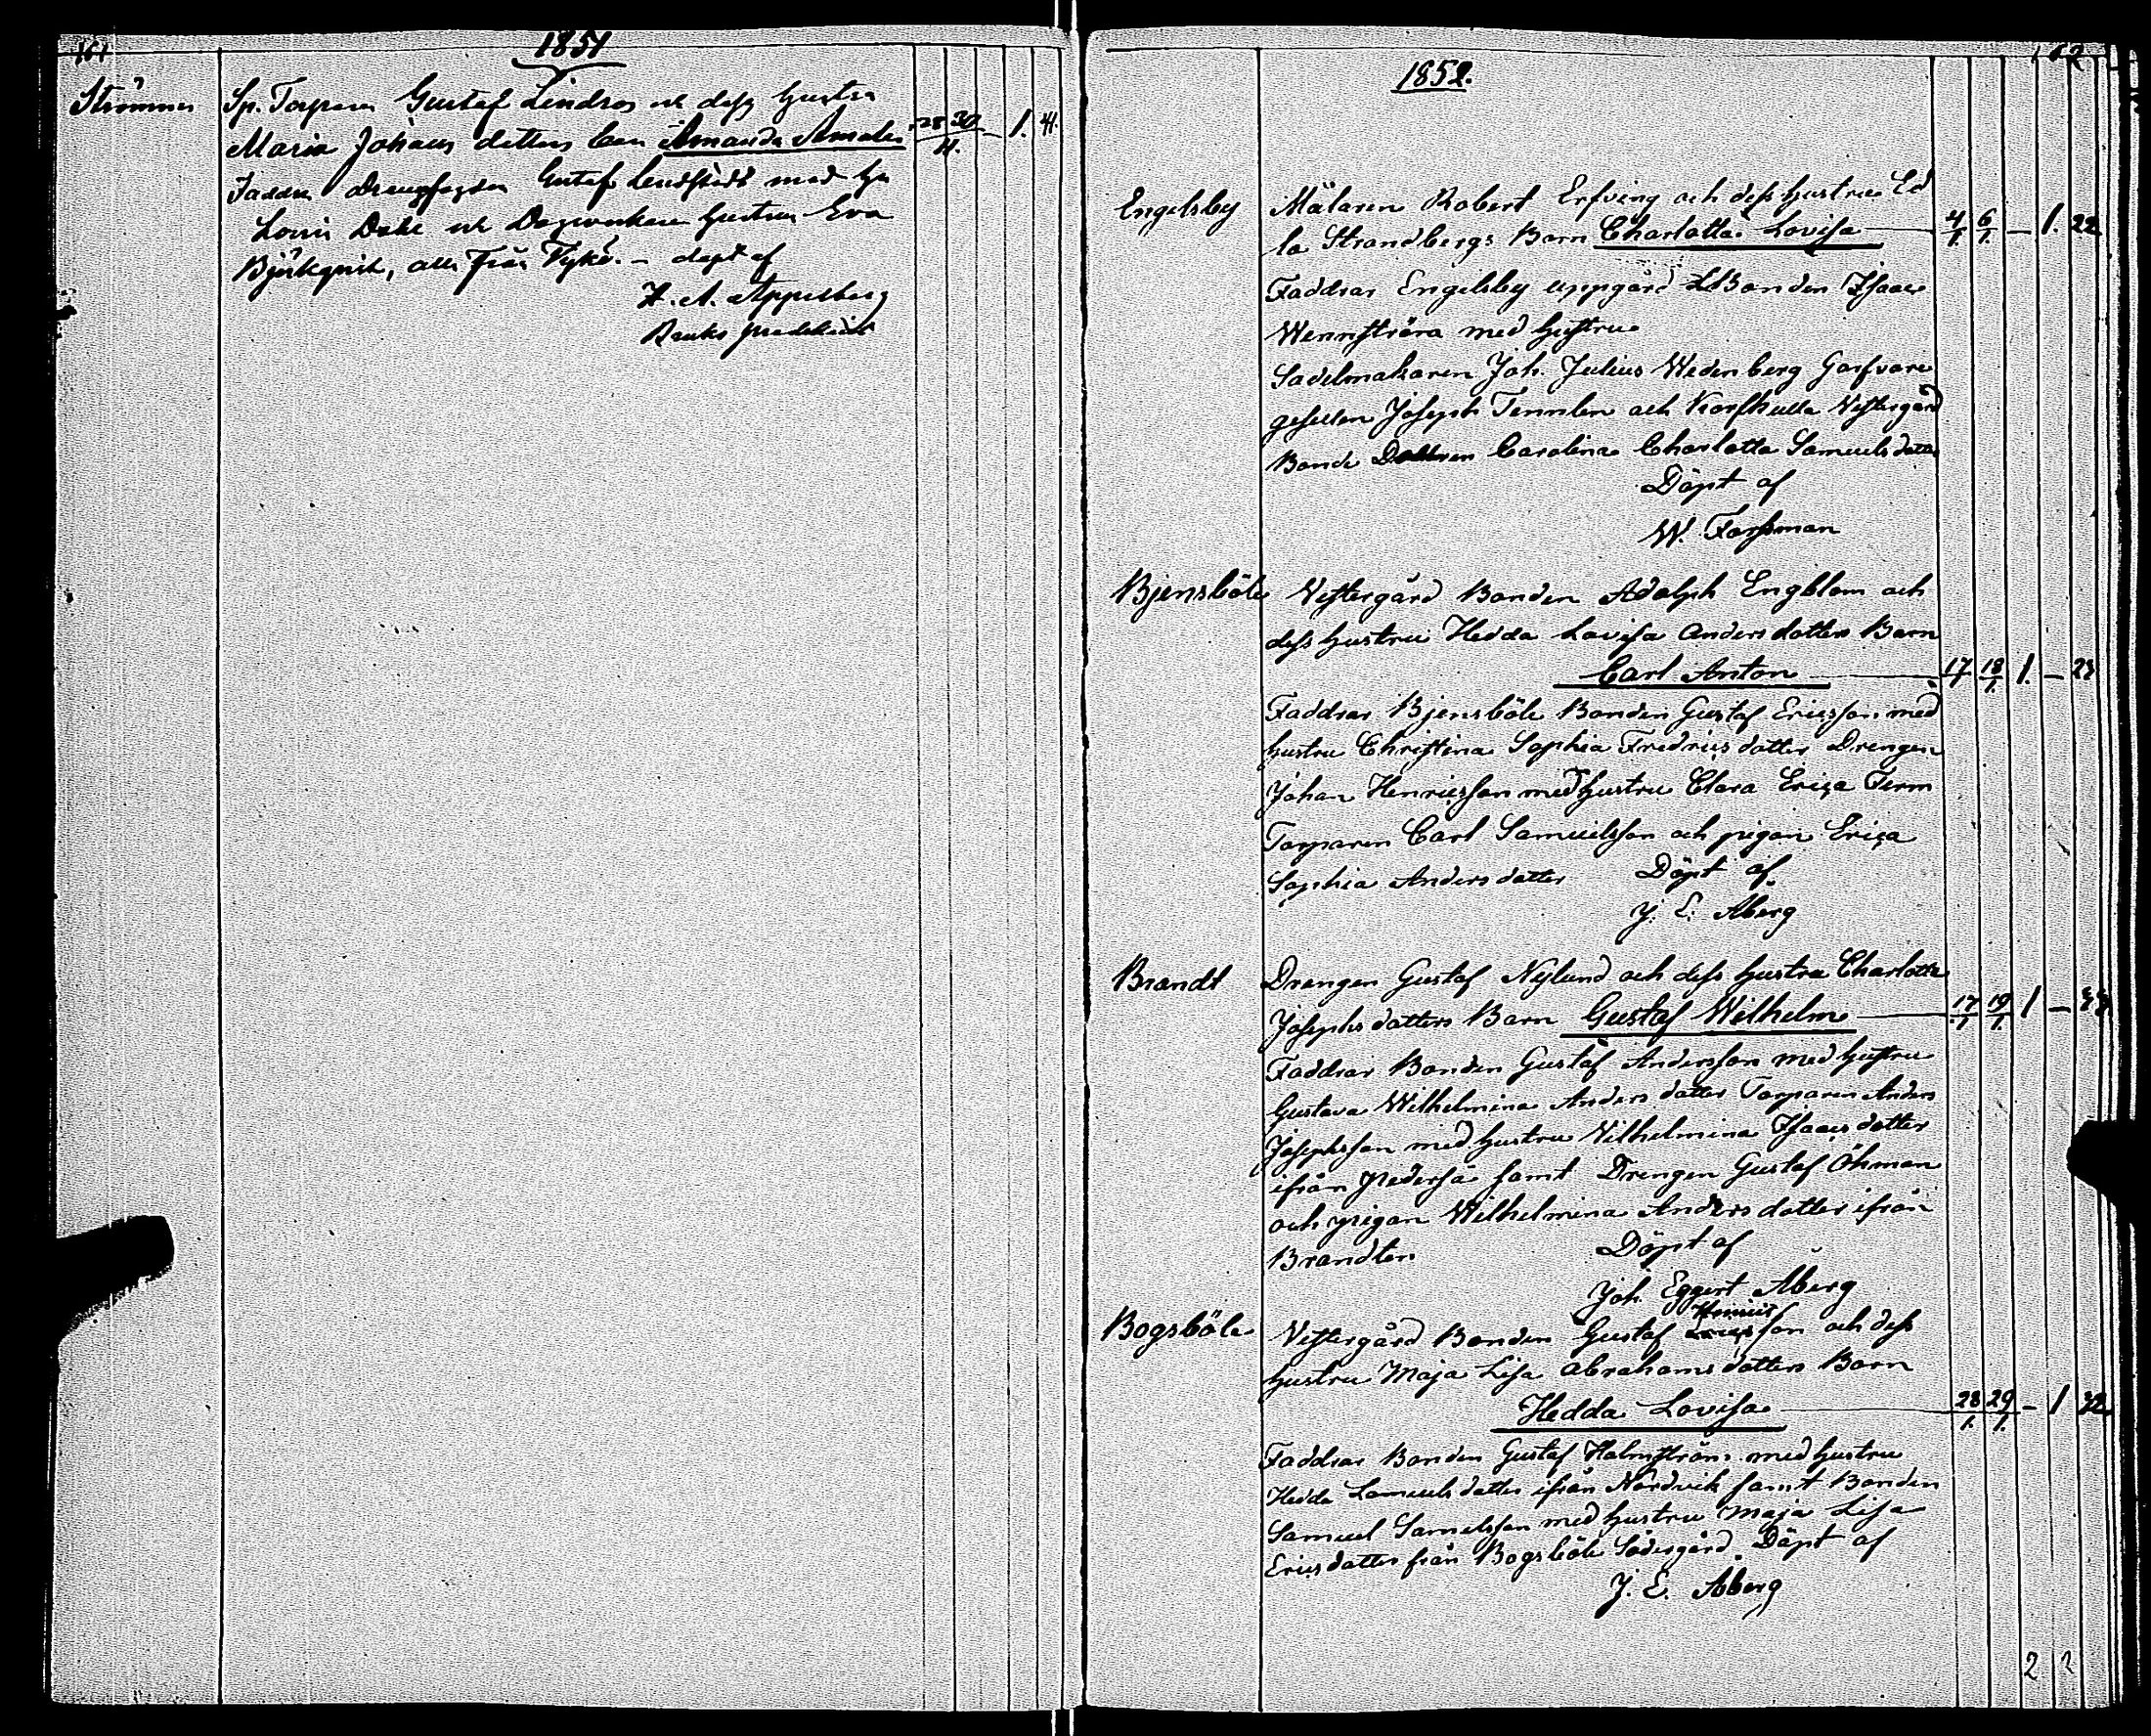 161
1851
Strömma Sp. Torparen Gustaf Lindros och dess hustru
Maria Johans dotters barn Amanda Amalia 28/11. 30 – 1. 41.
Faddrar Drengfogden Gustaf Lindstedt med hu
Lovis Dahl och hustrun Eva
Björkqvist, alla från Vykö. – döpt af
A. Appelberg
Bruks predikant
162
1852.
Engelsby Målaren Robert Erfving och dess hustru Ed
la Strandbergs Barn Charlotta Lovisa 4/1. 6/1. – 1. 22
Faddrar Engelsby uppgård Bonden Isaac
Wennström med hustru
Sadelmakaren Joh. Julius Wedenberg Garfvare
gesellen Joseph Tennlen och Korshulla Vestergård
Bonde Dottren Carolina Charlotta Samuelsdotter
Döpt af
W. Forssman
Bjensböle Vestergård Bonden Adolph Engblom och
dess hustru Hedda Lovisa Anders dotters Barn
Carl Anton 17/1 18/1. 1. – 23
Faddrar Bjensböle Bonden Gustaf Ericsson med
hustru Christina Sophia Fredrics dotter Drengen
Johan Henricsson med hustru Clara Erica Term
Torparen Carl Samuelsson och pigan Erica
Sophia Anders dotter Döpt af
J. E. Åberg
Brandt Drengen Gustaf Nylund och dess hustru Charlotta
Josephs dotters Barn Gustaf Wilhelm 17/1 19/1. 1 –
Faddrar Bonden Gustaf Andersson med hustru
Gustava Wilhelmina Anders dotter Torparen Anders
Josephsson med hustru Vilhelmina Isaacs dotter
ifrån Pederså samt Drengen Gustaf Öhman
och pigan Wilhelmina Anders dotter ifrån
Brandten Döpt af
Joh. Eggert Åberg
Bogsböle Vestergård Bonden Gustaf Henricsson och dess
hustru Maja Lisa Abrahams dotters Barn
Hedda Lovisa 28/1. 29/1. – 1 32
Faddrar Bonden Gustaf Holmström med hustru
Hedda Samuels dotter ifrån Nordvik samt Bonden
Samuel Samuelsson med hustru Maja Lisa
Erics dotter från Bogsböle Södergård Döpt af
J. E. Åberg
2 2